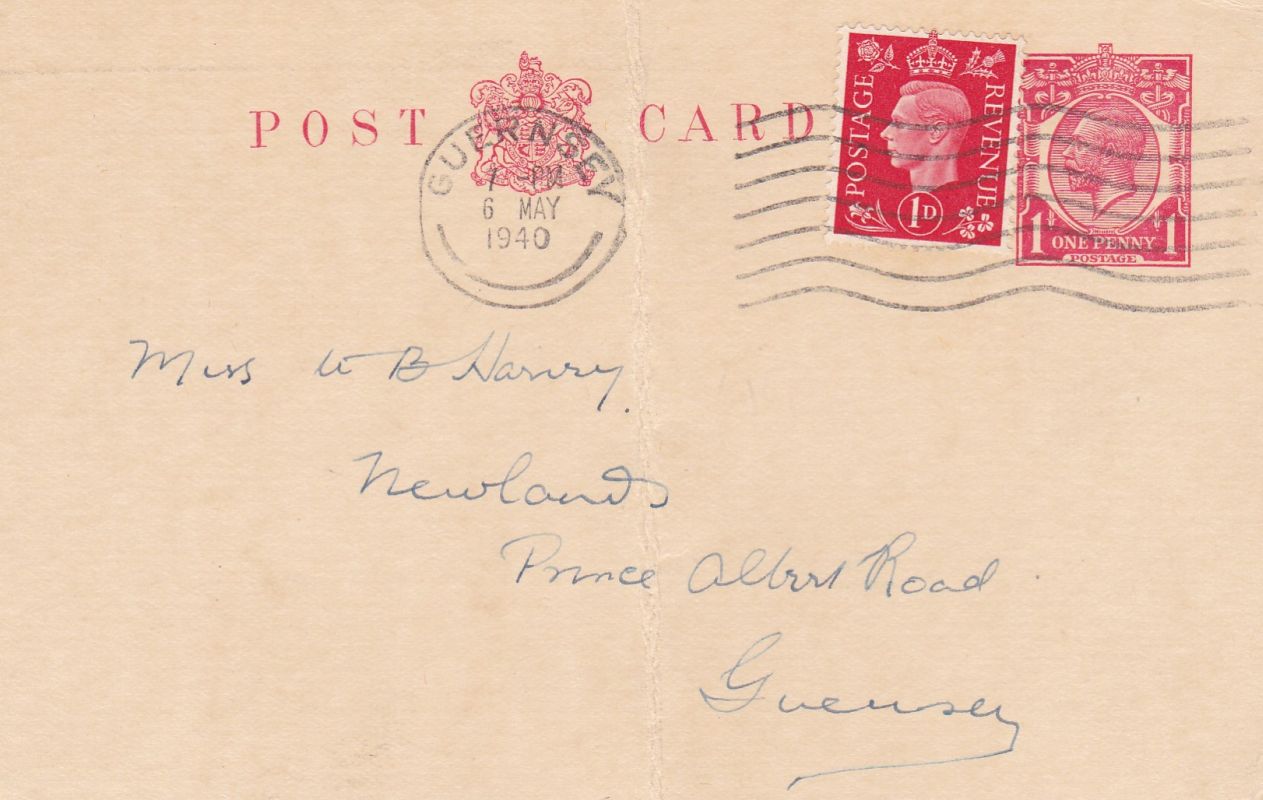 POST CARD
GUERNSEY
1 - PM
6 MAY
1940
POSTAGE REVENUE
1D
1 ONE PENNY 1
POSTAGE
Miss W B Harvey
Newlands
Prince Albert Road
Guernsey